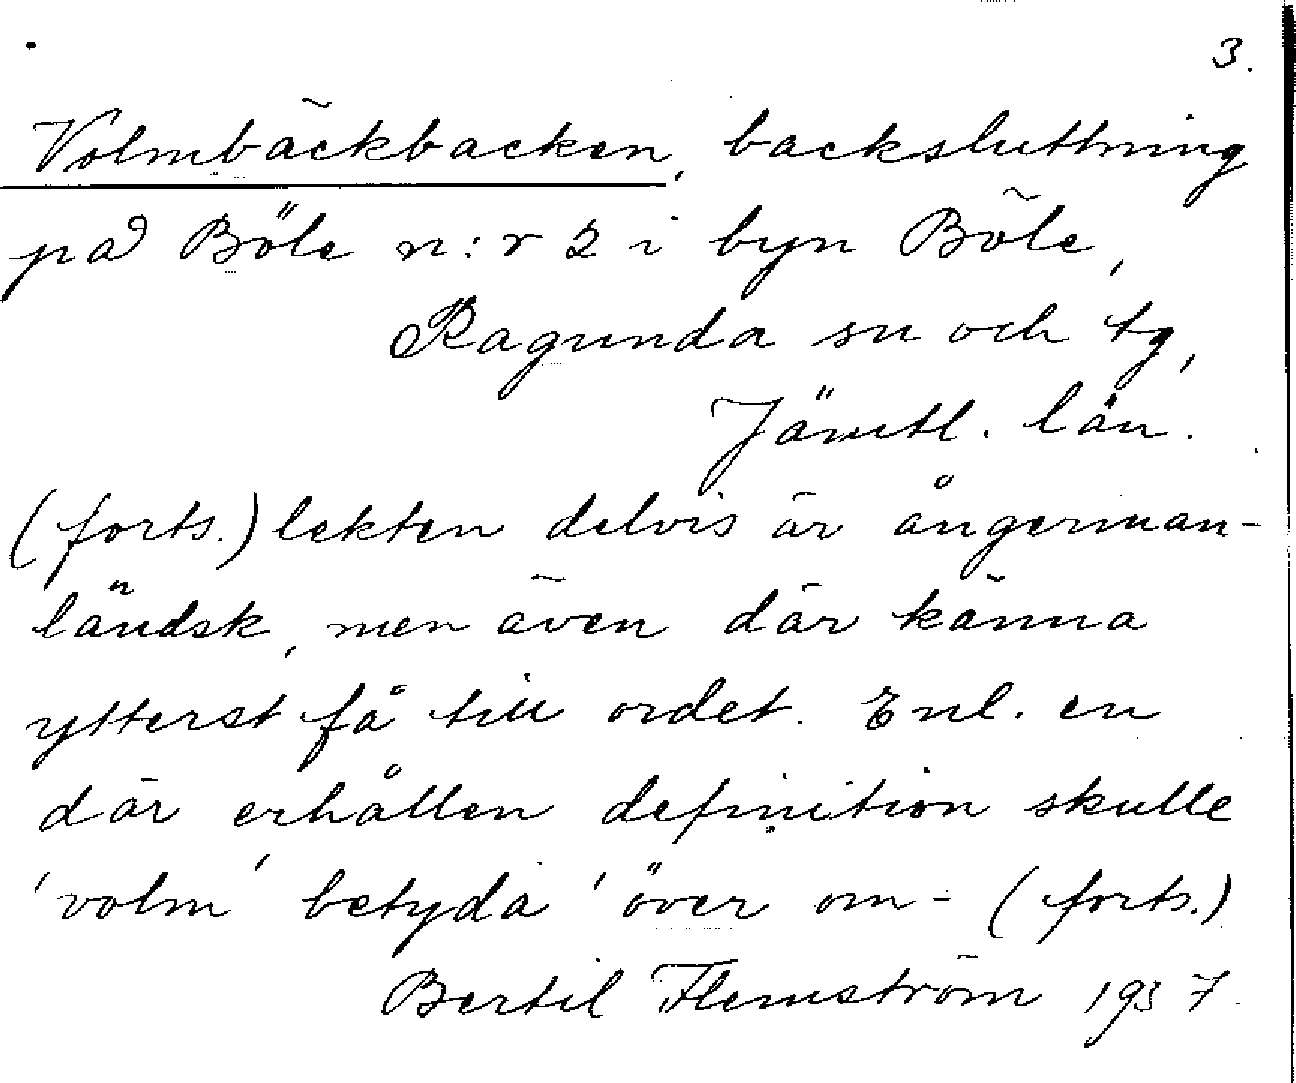 3.
Volmbäckbacken, backsluttning
på Böle n:r 2 i byn Böle,
Ragunda sn och tg,
Jämtl. län.
(forts.) lekten delvis är ångerman-
ländsk, men även där känna
ytterst få till ordet. Enl. en
där erhållen definition skulle
'volm' betyda 'över om- (forts.)
Bertil Flemström 1937